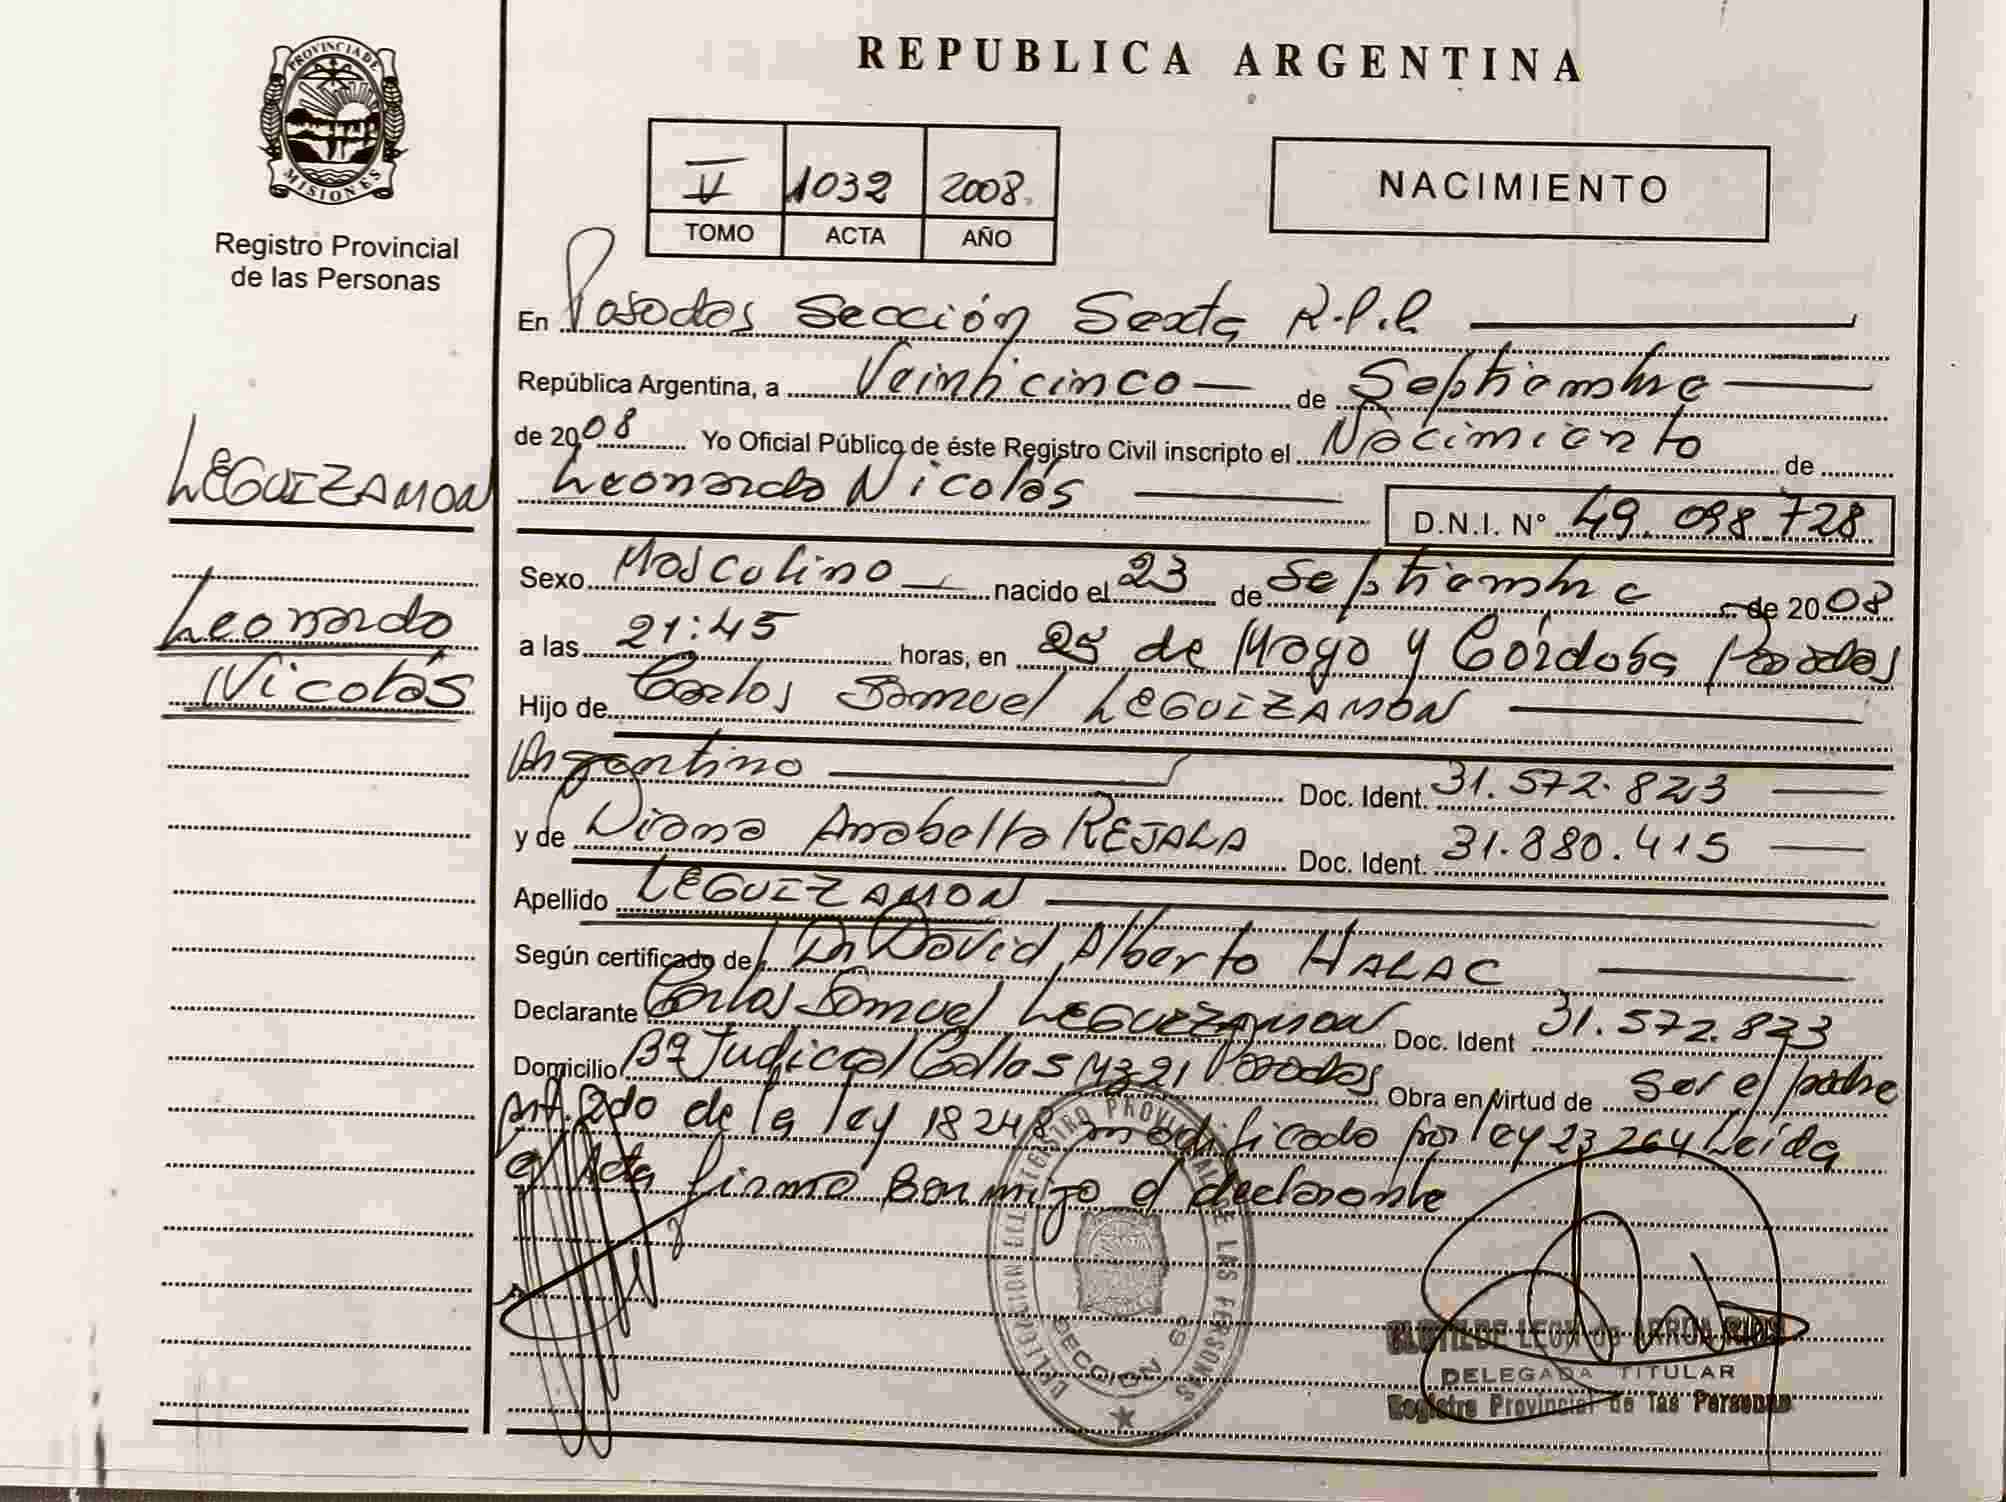 PROVINCIA DE
MISIONES
Registro Provincial
de las Personas
REPUBLICA ARGENTINA
V 1032 2008.
TOMO ACTA AÑO
NACIMIENTO
En Posadas Sección Sexta R.P.P.
República Argentina, a Veinticinco de Septiembre
de 2008 Yo Oficial Público de éste Registro Civil inscripto el Nacimiento de
Leonardo Nicolás D.N.I. Nº 49.098.728
LEGUIZAMON
Leonardo
Nicolás
Sexo Masculino nacido el 23 de Septiembre de 2008
a las 21:45 horas, en 25 de Mayo y Córdoba Posadas
Hijo de Carlos Samuel LEGUIZAMON
Argentino Doc. Ident. 31.572.823
y de Diana Anabella REJALA Doc. Ident. 31.880.415
Apellido LEGUIZAMON
Según certificado de Dr David Alberto HALAC
Declarante Carlos Samuel LEGUIZAMON Doc. Ident 31.572.823
Domicilio Bº Judicial Calla S Mz 21 Posadas Obra en virtud de ser el padre
Art. 2do de la ley 18248 modificado por ley 23264 Leída
el Acta firma conmigo el declarante
REGISTRO PROVINCIAL DE LAS PERSONAS
SECCION 6ª
CLOTILDE LEON de
DELEGADA TITULAR
Registro Provincial de las Personas